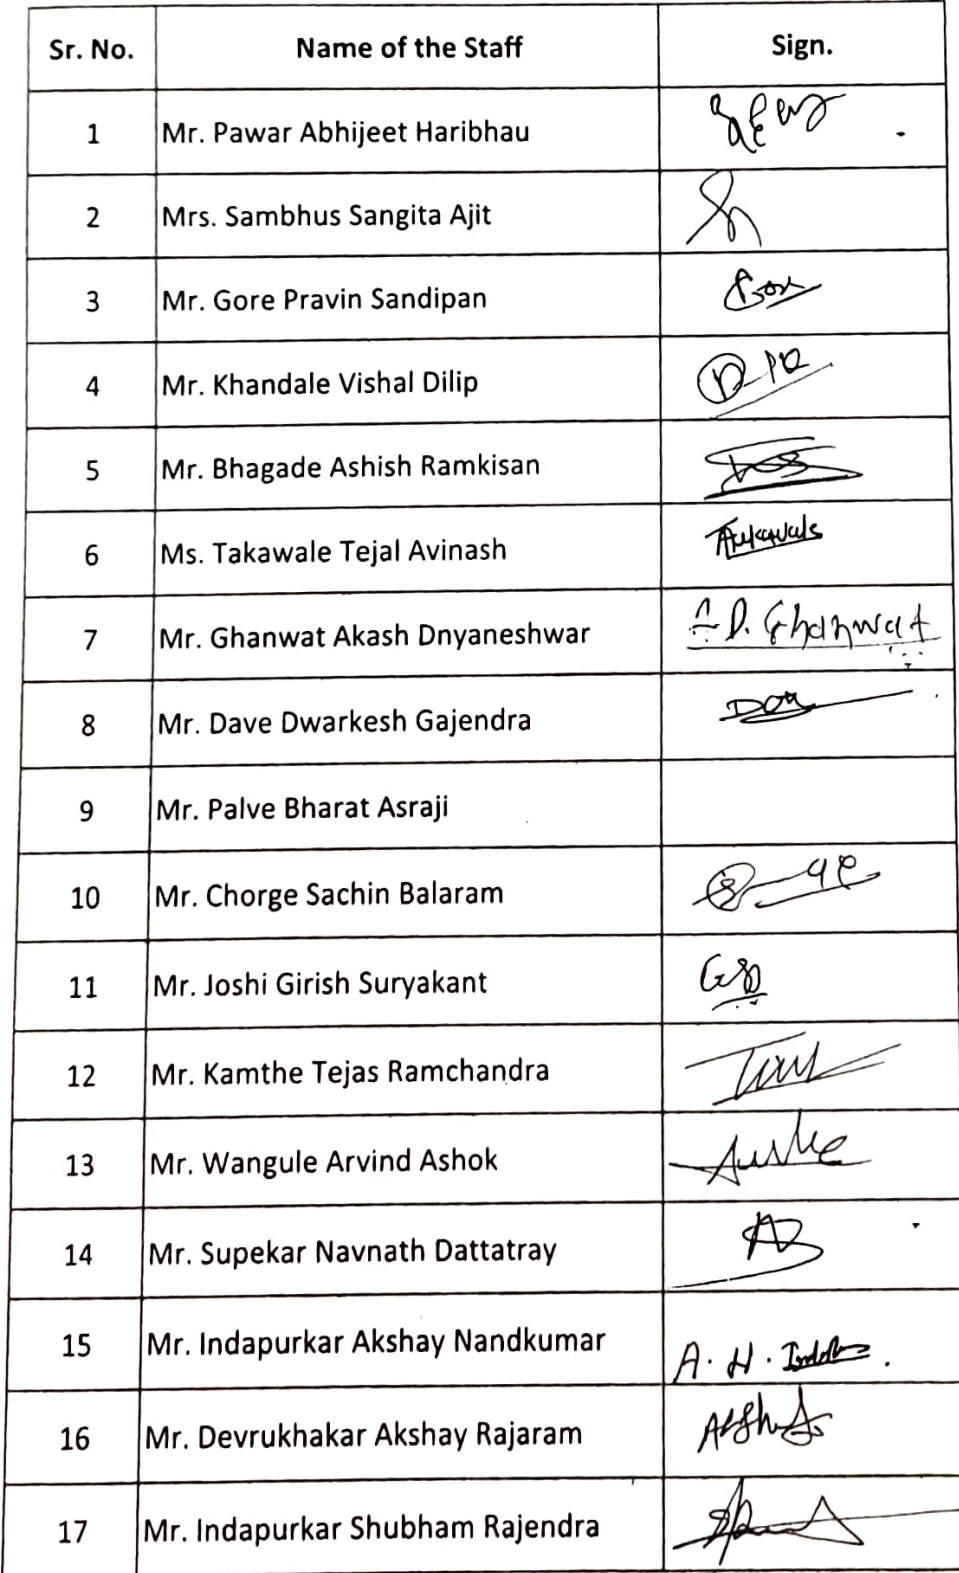 Sr. No. Name of the Staff Sign.
1 Mr. Pawar Abhijeet Haribhau
2 Mrs. Sambhus Sangita Ajit
3 Mr. Gore Pravin Sandipan
4 Mr. Khandale Vishal Dilip
5 Mr. Bhagade Ashish Ramkisan
6 Ms. Takawale Tejal Avinash
7 Mr. Ghanwat Akash Dnyaneshwar D. Ghanwat
8 Mr. Dave Dwarkesh Gajendra
9 Mr. Palve Bharat Asraji
10 Mr. Chorge Sachin Balaram
11 Mr. Joshi Girish Suryakant
12 Mr. Kamthe Tejas Ramchandra
13 Mr. Wangule Arvind Ashok
14 Mr. Supekar Navnath Dattatray
15 Mr. Indapurkar Akshay Nandkumar
16 Mr. Devrukhakar Akshay Rajaram
17 Mr. Indapurkar Shubham Rajendra